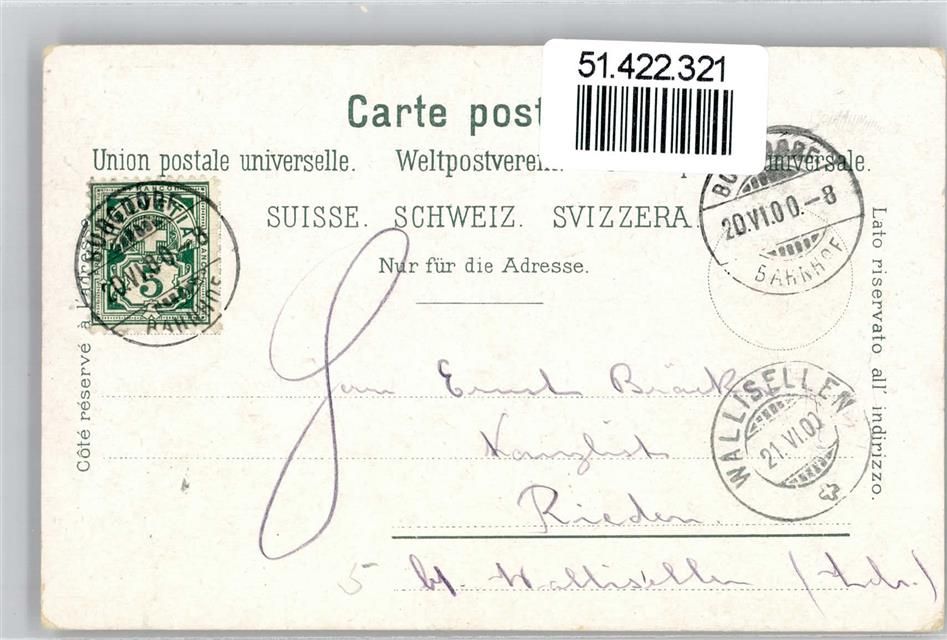 51.422.321
Carte post
Union postale universelle. Weltpostverein. universale.
SUISSE. SCHWEIZ. SVIZZERA.
Nur für die Adresse.
Côté réservé à l'adresse
Lato riservato all' indirizzo.
BURGDORF
20.VI.00.-8
BAHNHOF
FRANCO
5
BURGDORF
20.VI.00.-8
BAHNHOF
WALLISELLEN
21.VI.00
Herrn Ernst
Kanzlist
Rieden
5 bl. Wallisellen (Zch.)